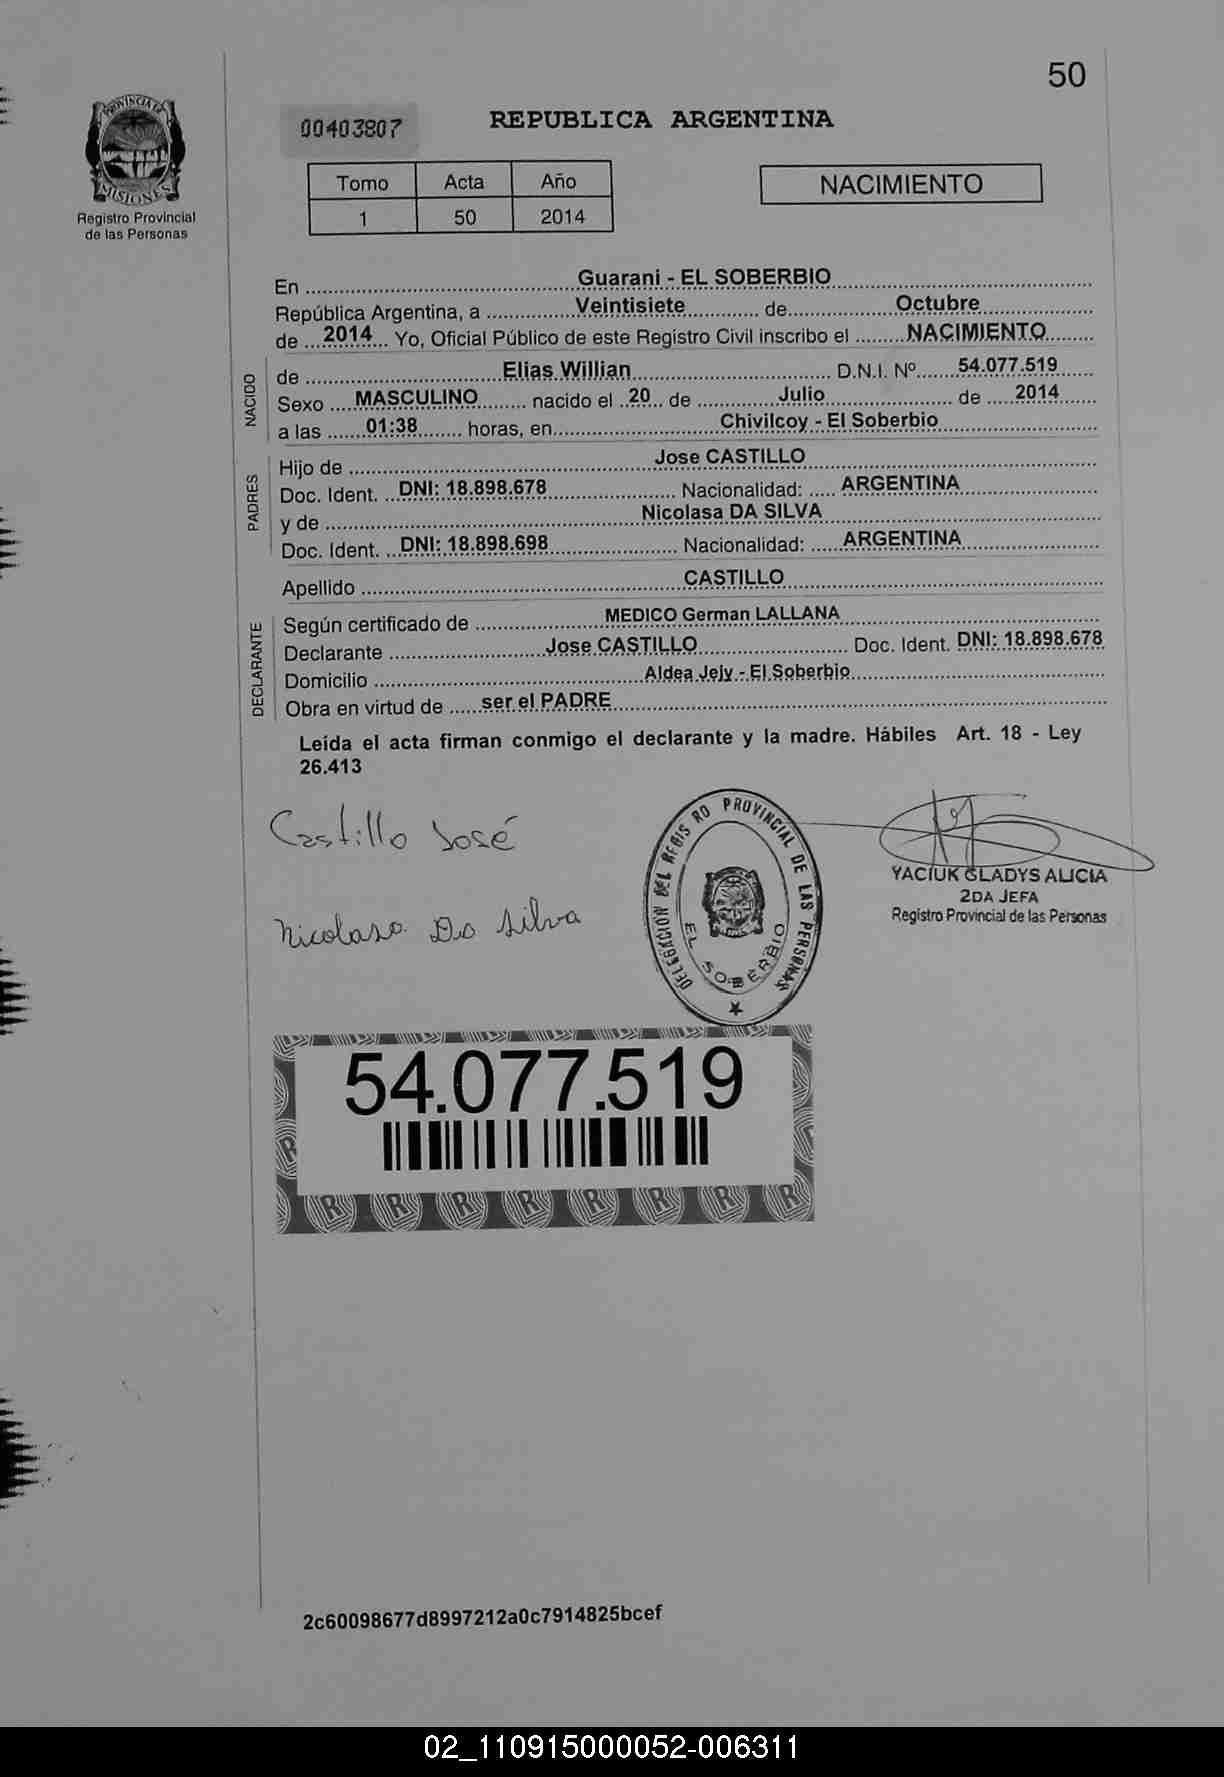 50
PROVINCIA DE
MISIONES
Registro Provincial
de las Personas
00403807
REPUBLICA ARGENTINA
Tomo Acta Año
1 50 2014
NACIMIENTO
En Guarani - EL SOBERBIO
República Argentina, a Veintisiete de Octubre
de 2014 Yo, Oficial Público de este Registro Civil inscribo el NACIMIENTO
NACIDO
de Elias Willian D.N.I. Nº 54.077.519
Sexo MASCULINO nacido el 20 de Julio de 2014
a las 01:38 horas, en Chivilcoy - El Soberbio
PADRES
Hijo de Jose CASTILLO
Doc. Ident. DNI: 18.898.678 Nacionalidad: ARGENTINA
y de Nicolasa DA SILVA
Doc. Ident. DNI: 18.898.698 Nacionalidad: ARGENTINA
Apellido CASTILLO
DECLARANTE
Según certificado de MEDICO German LALLANA
Declarante Jose CASTILLO Doc. Ident. DNI: 18.898.678
Domicilio Aldea Jejy - El Soberbio
Obra en virtud de ser el PADRE
Leída el acta firman conmigo el declarante y la madre. Hábiles Art. 18 - Ley
26.413
Castillo José
Nicolasa Da Silva
DELEGACION DEL REGIS RO PROVINCIAL DE LAS PERSONAS
EL SOBERBIO
YACIUK GLADYS ALICIA
2DA JEFA
Registro Provincial de las Personas
54.077.519
R R R R R R R R R
2c60098677d8997212a0c7914825bcef
02_110915000052-006311